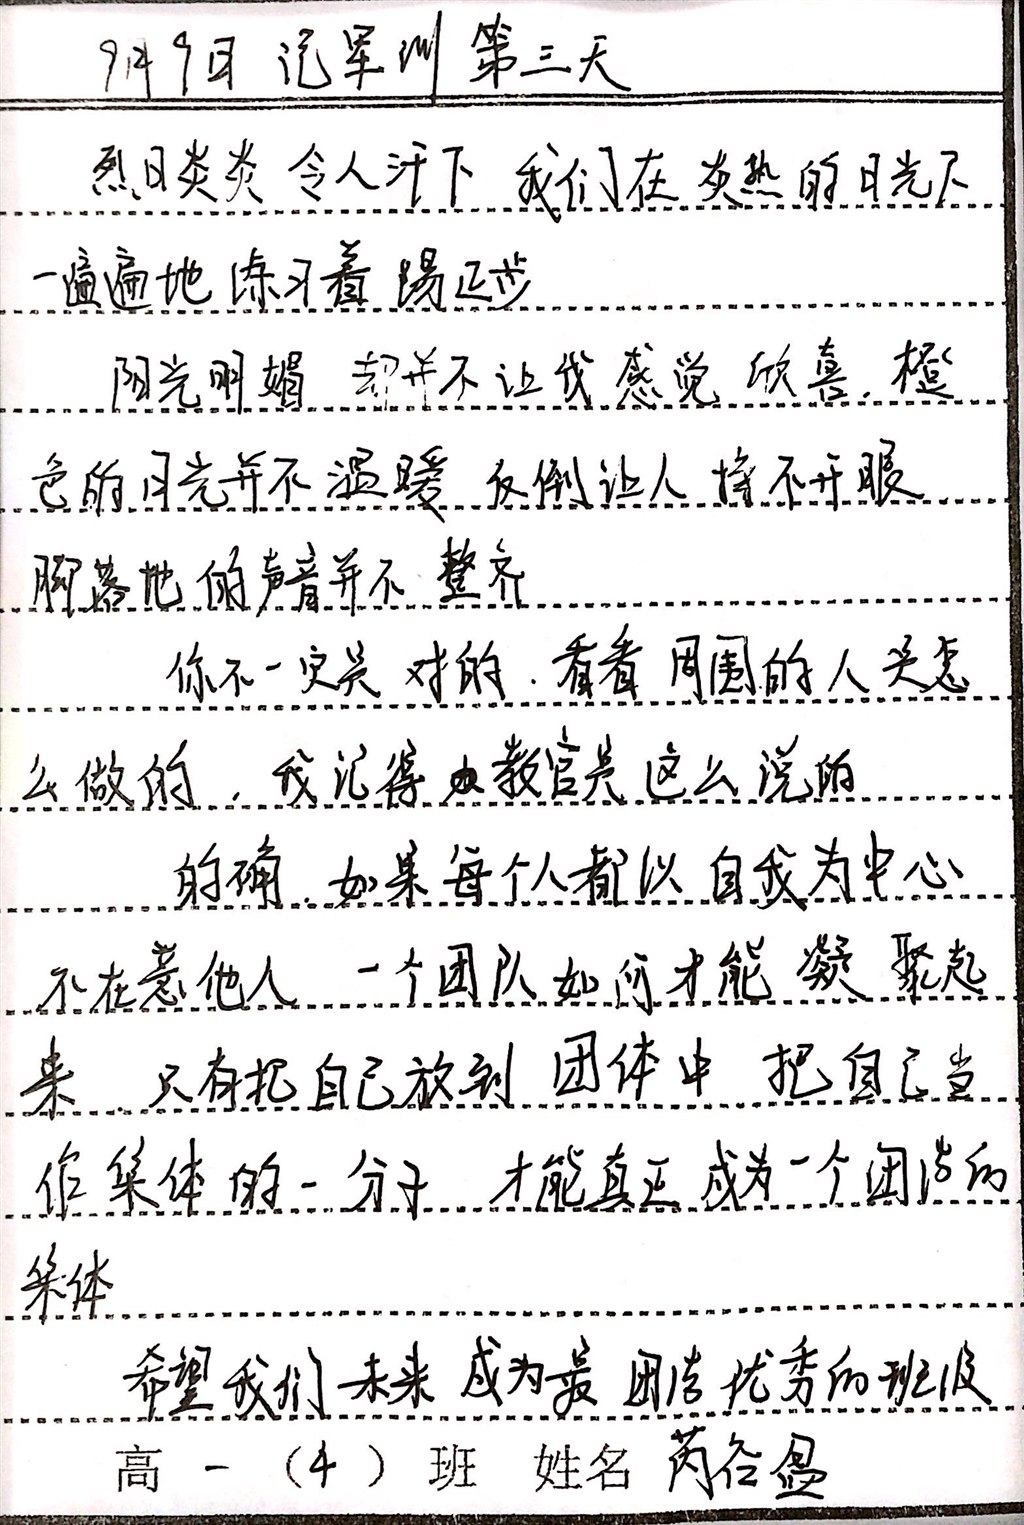 9月9日 记军训 第三天
烈日炎炎 令人汗下 我们在炎热的日光下
一遍遍地 练习着 踢正步
阳光明媚 却并不让我感觉欣喜.橙
色的日光并不温暖 反倒让人 睁不开眼
脚落地的声音并不 整齐
你不一定是 对的.看看 周围的人是怎
么做的.我记得教官是这么说的
的确.如果每个人都以自我为中心
不在意他人 一个团队如何才能 凝聚起
来.只有把自己放到 团体中 把自己当
作集体的一分子 才能真正 成为一个团结的
集体
希望我们未来 成为最 团结优秀的班级
高一(4)班 姓名 芮